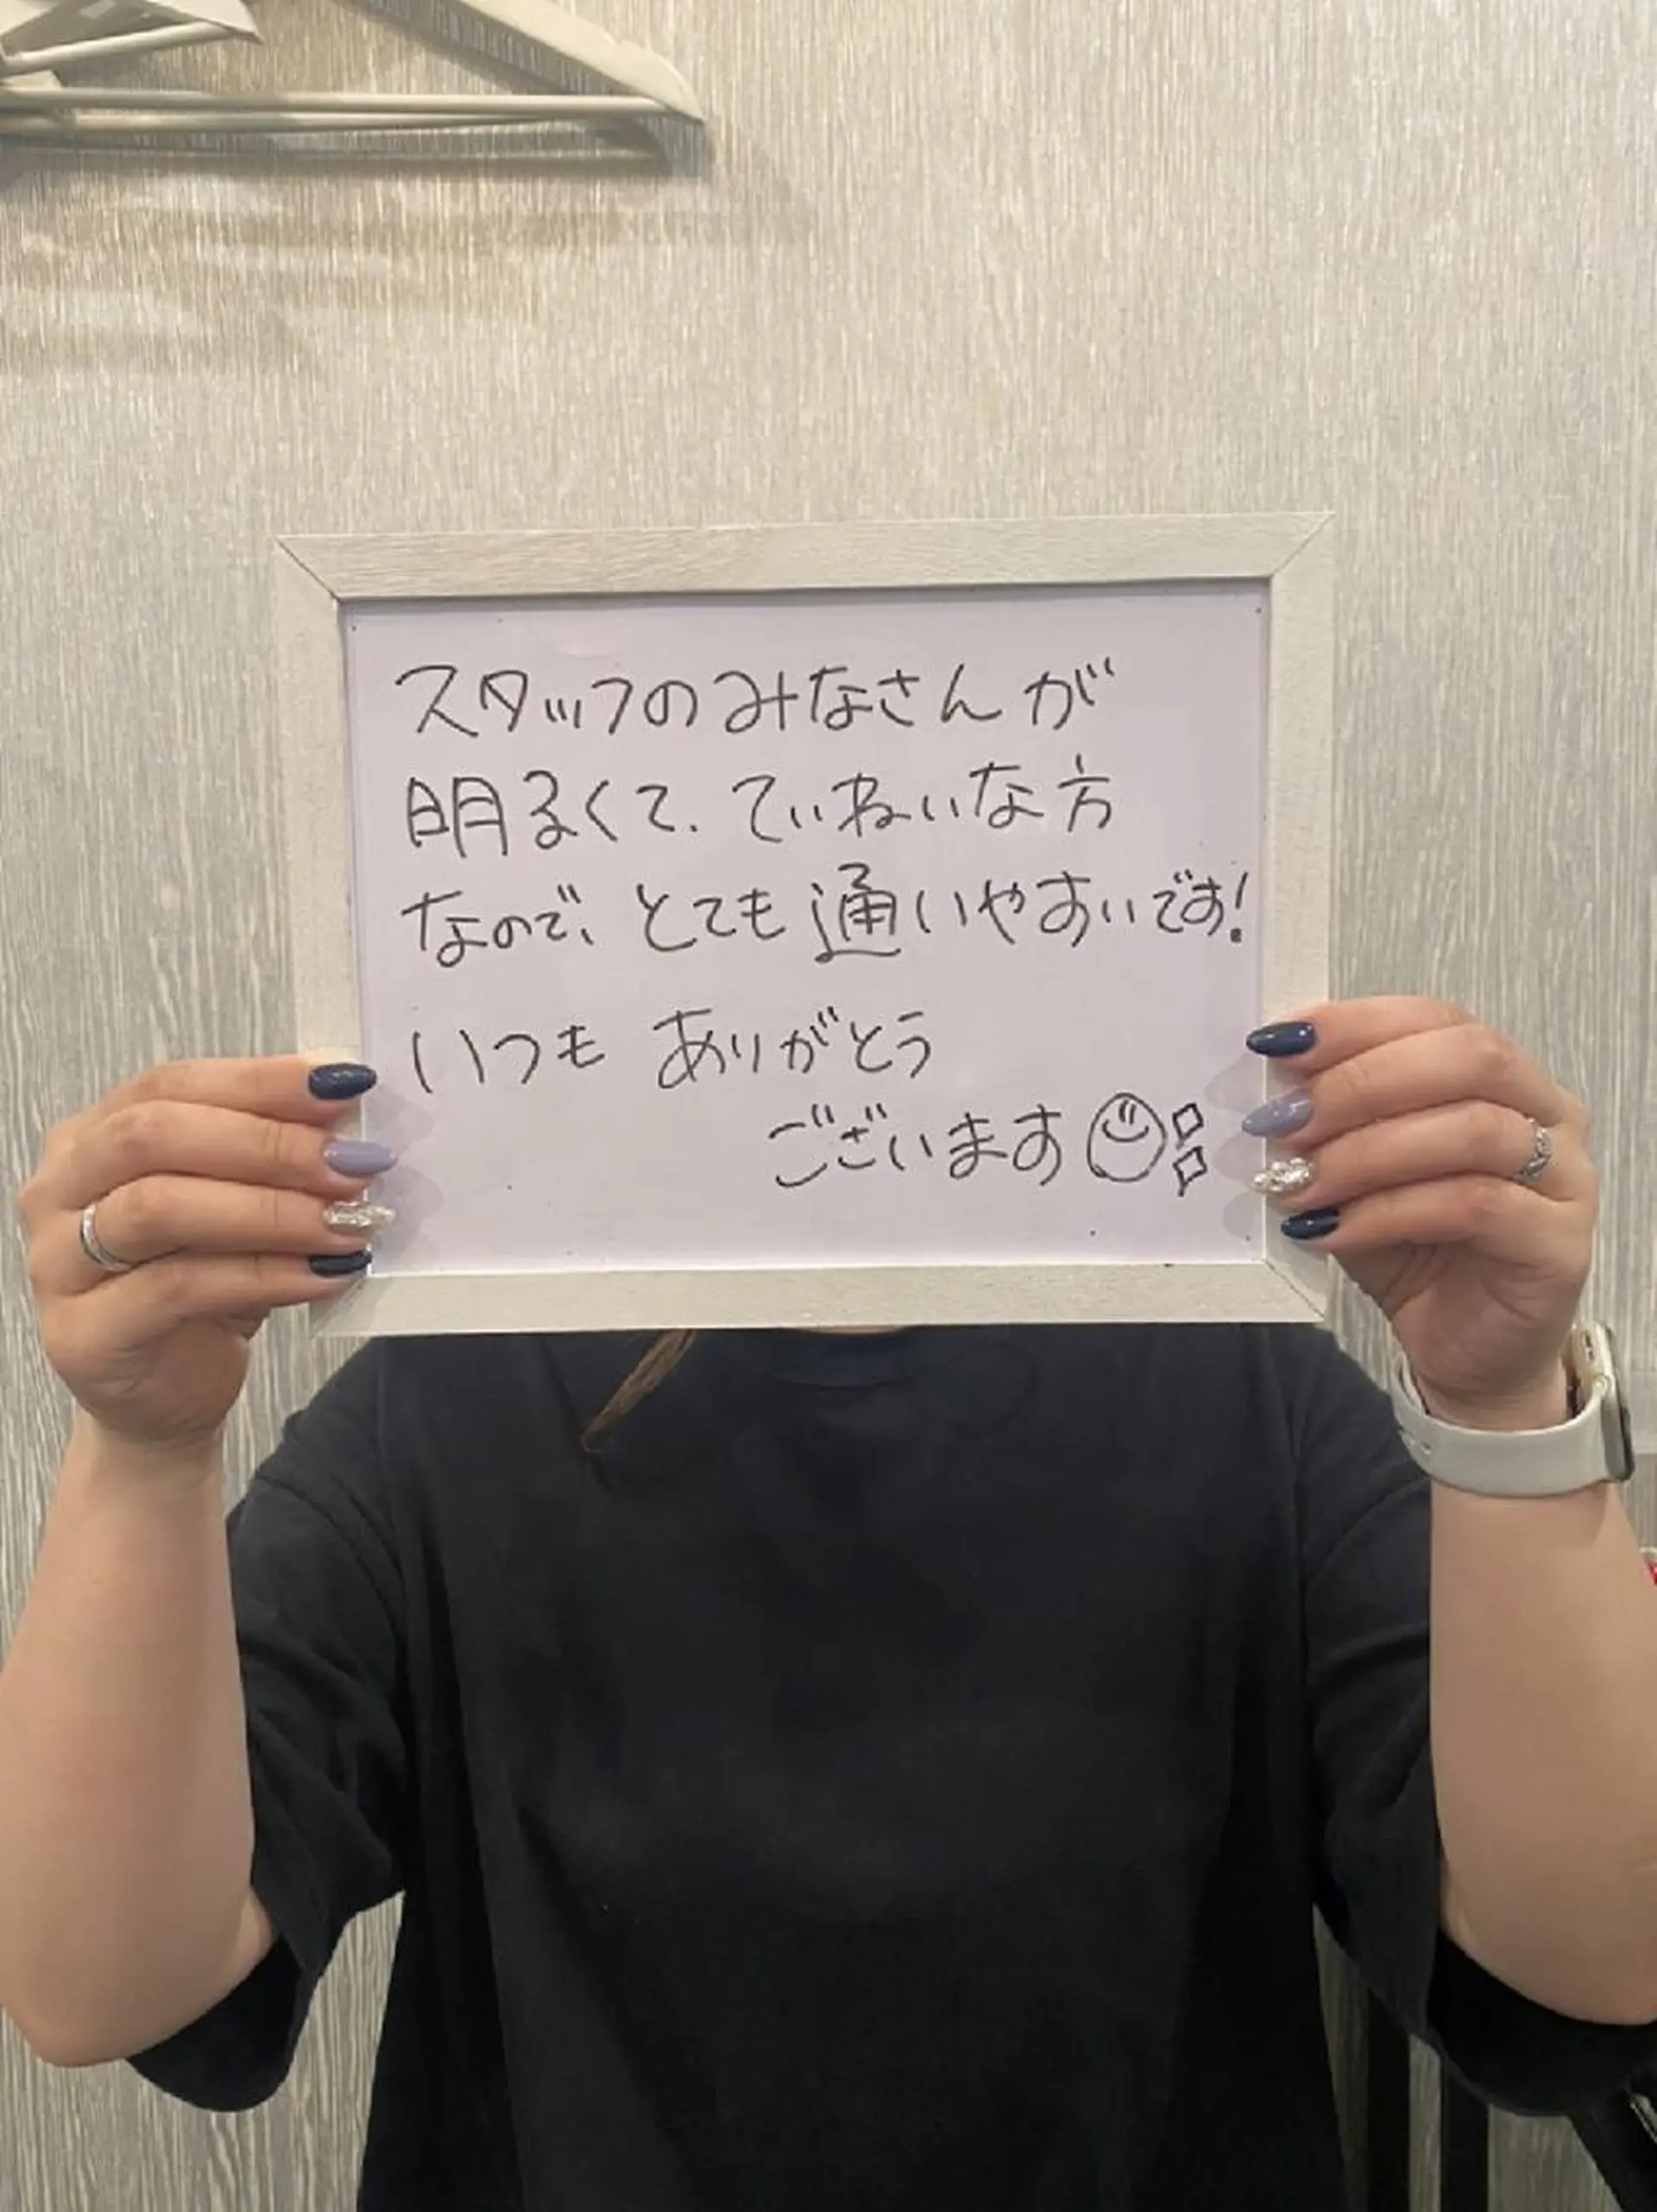 スタッフのみなさんが
明るくて、ていねいな方
なので、とても通いやすいです!
いつもありがとう
ございます